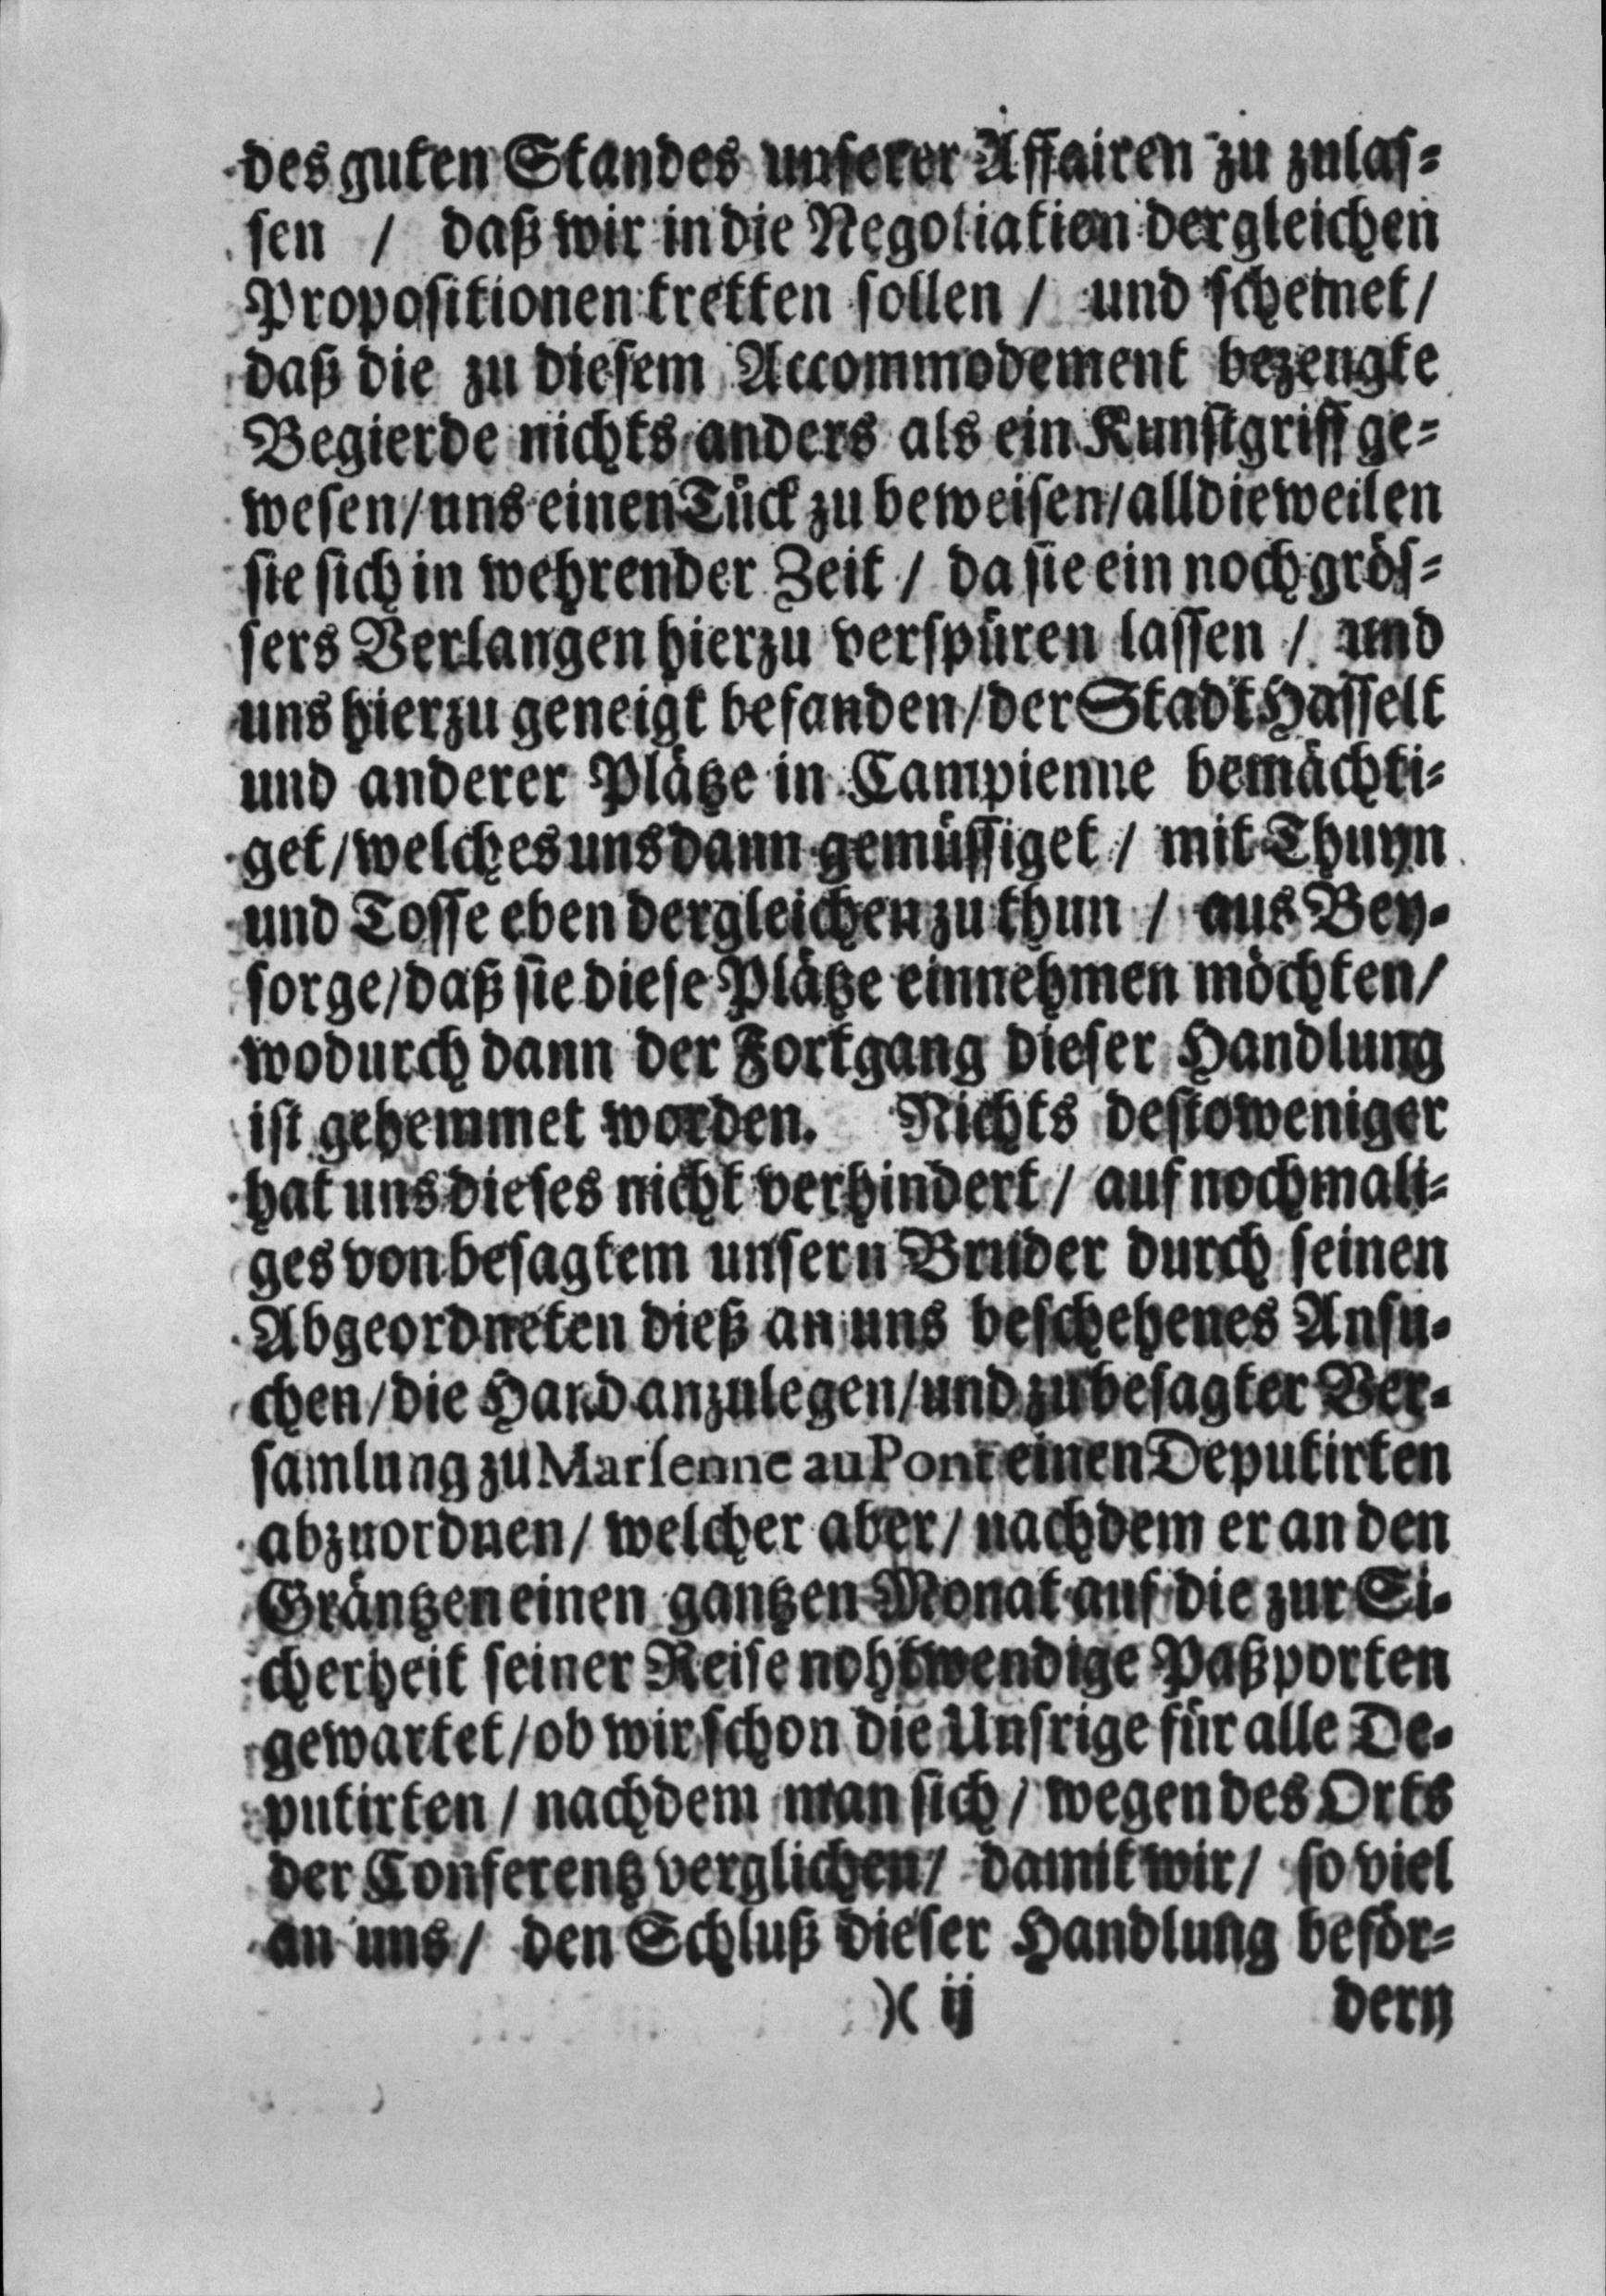 des guten Standes unserer Affairen zu zulas-
sen / daß wir in die Negotiation dergleichen
Propositionen tretten sollen / und scheinet /
daß die zu diesem Accommodement bezeugte
Begierde nichts anders als ein Kunstgriff ge-
wesen / uns einen Tück zu beweisen / alldieweilen
sie sich in wehrender Zeit / da sie ein noch grös-
sers Verlangen hierzu verspüren lassen / und
uns hierzu geneigt befanden / der Stadt Hasselt
und anderer Plätze in Campienne bemächti-
get / welches uns dann gemüssiget / mit Thuyn
und Tosse eben dergleichen zu thun / aus Bey-
sorge / daß sie diese Plätze einnehmen möchten /
wodurch dann der Fortgang dieser Handlung
ist gehemmet worden. Nichts destoweniger
hat uns dieses nicht verhindert / auf nochmali-
ges von besagtem unsern Bruder durch seinen
Abgeordneten dieß an uns beschehenes Ansu-
chen / die Hand anzulegen / und zu besagter Ver-
samlung zu Marsenne au Pont einen Deputirten
abzuordnen / welcher aber / nachdem er an den
Gräntzen einen gantzen Monat auf die zur Si-
cherheit seiner Reise nohtwendige Paßporten
gewartet / ob wir schon die Unsrige für alle De-
putirten / nachdem man sich / wegen des Orts
der Conferentz verglichen / damit wir / so viel
an uns / den Schluß dieser Handlung beför-
)( ij dern